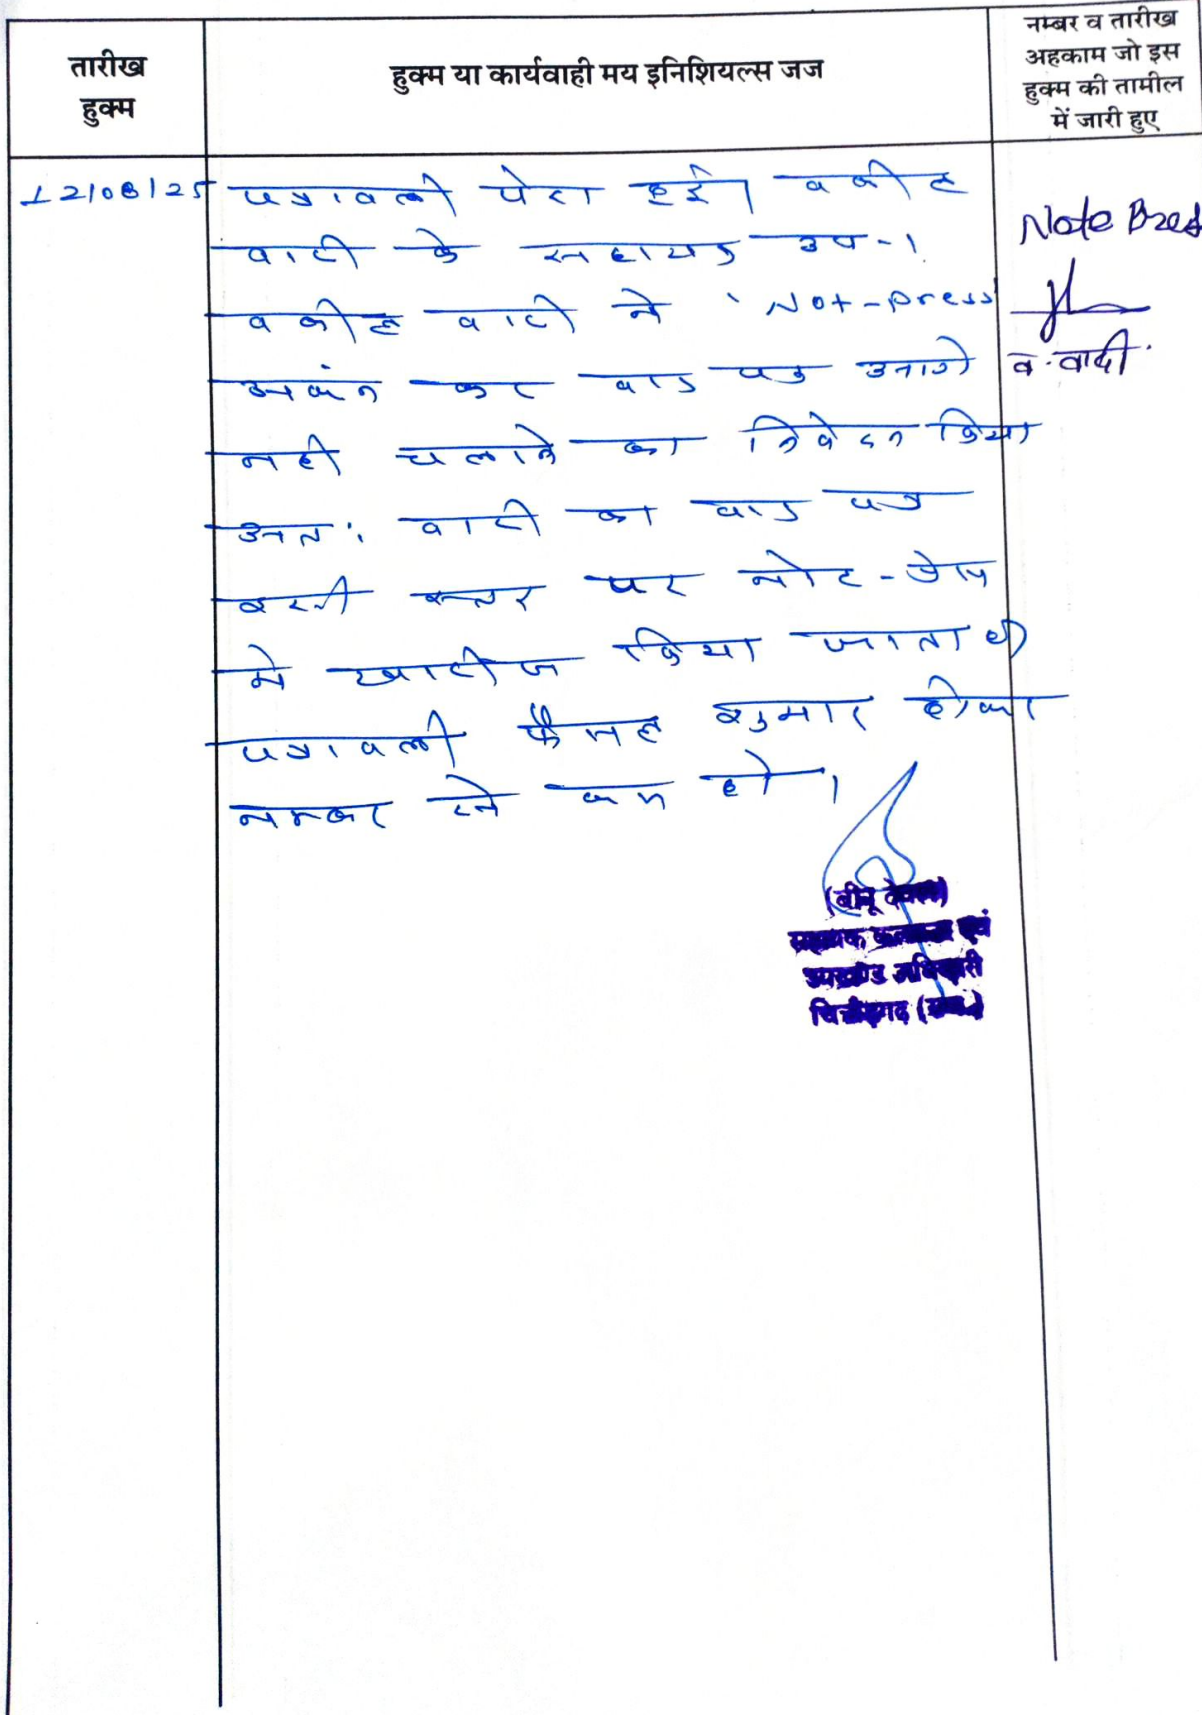 तारीख
हुक्म
हुक्म या कार्यवाही मय इनिशियल्स जज
नम्बर व तारीख
अहकाम जो इस
हुक्म की तामील
में जारी हुए
12/08/25
पत्रावली पेश हुई। वकील
वादी के सहायक उप-।
वकील वादी ने Not-press
अंकन कर वाद पत्र आगे
नही चलाने का निवेदन किया
अतः वादी का वाद पत्र
इसी स्तर पर नोट-प्रेस
मे खारीज किया जाता है
पत्रावली फैसल शुमार होकर
नम्बर से कम हो।
Note Pres
व. वादी
(बीनू देवल)
सहायक कलक्टर एवं
उपखण्ड अधिकारी
चित्तौड़गढ़ (राज.)